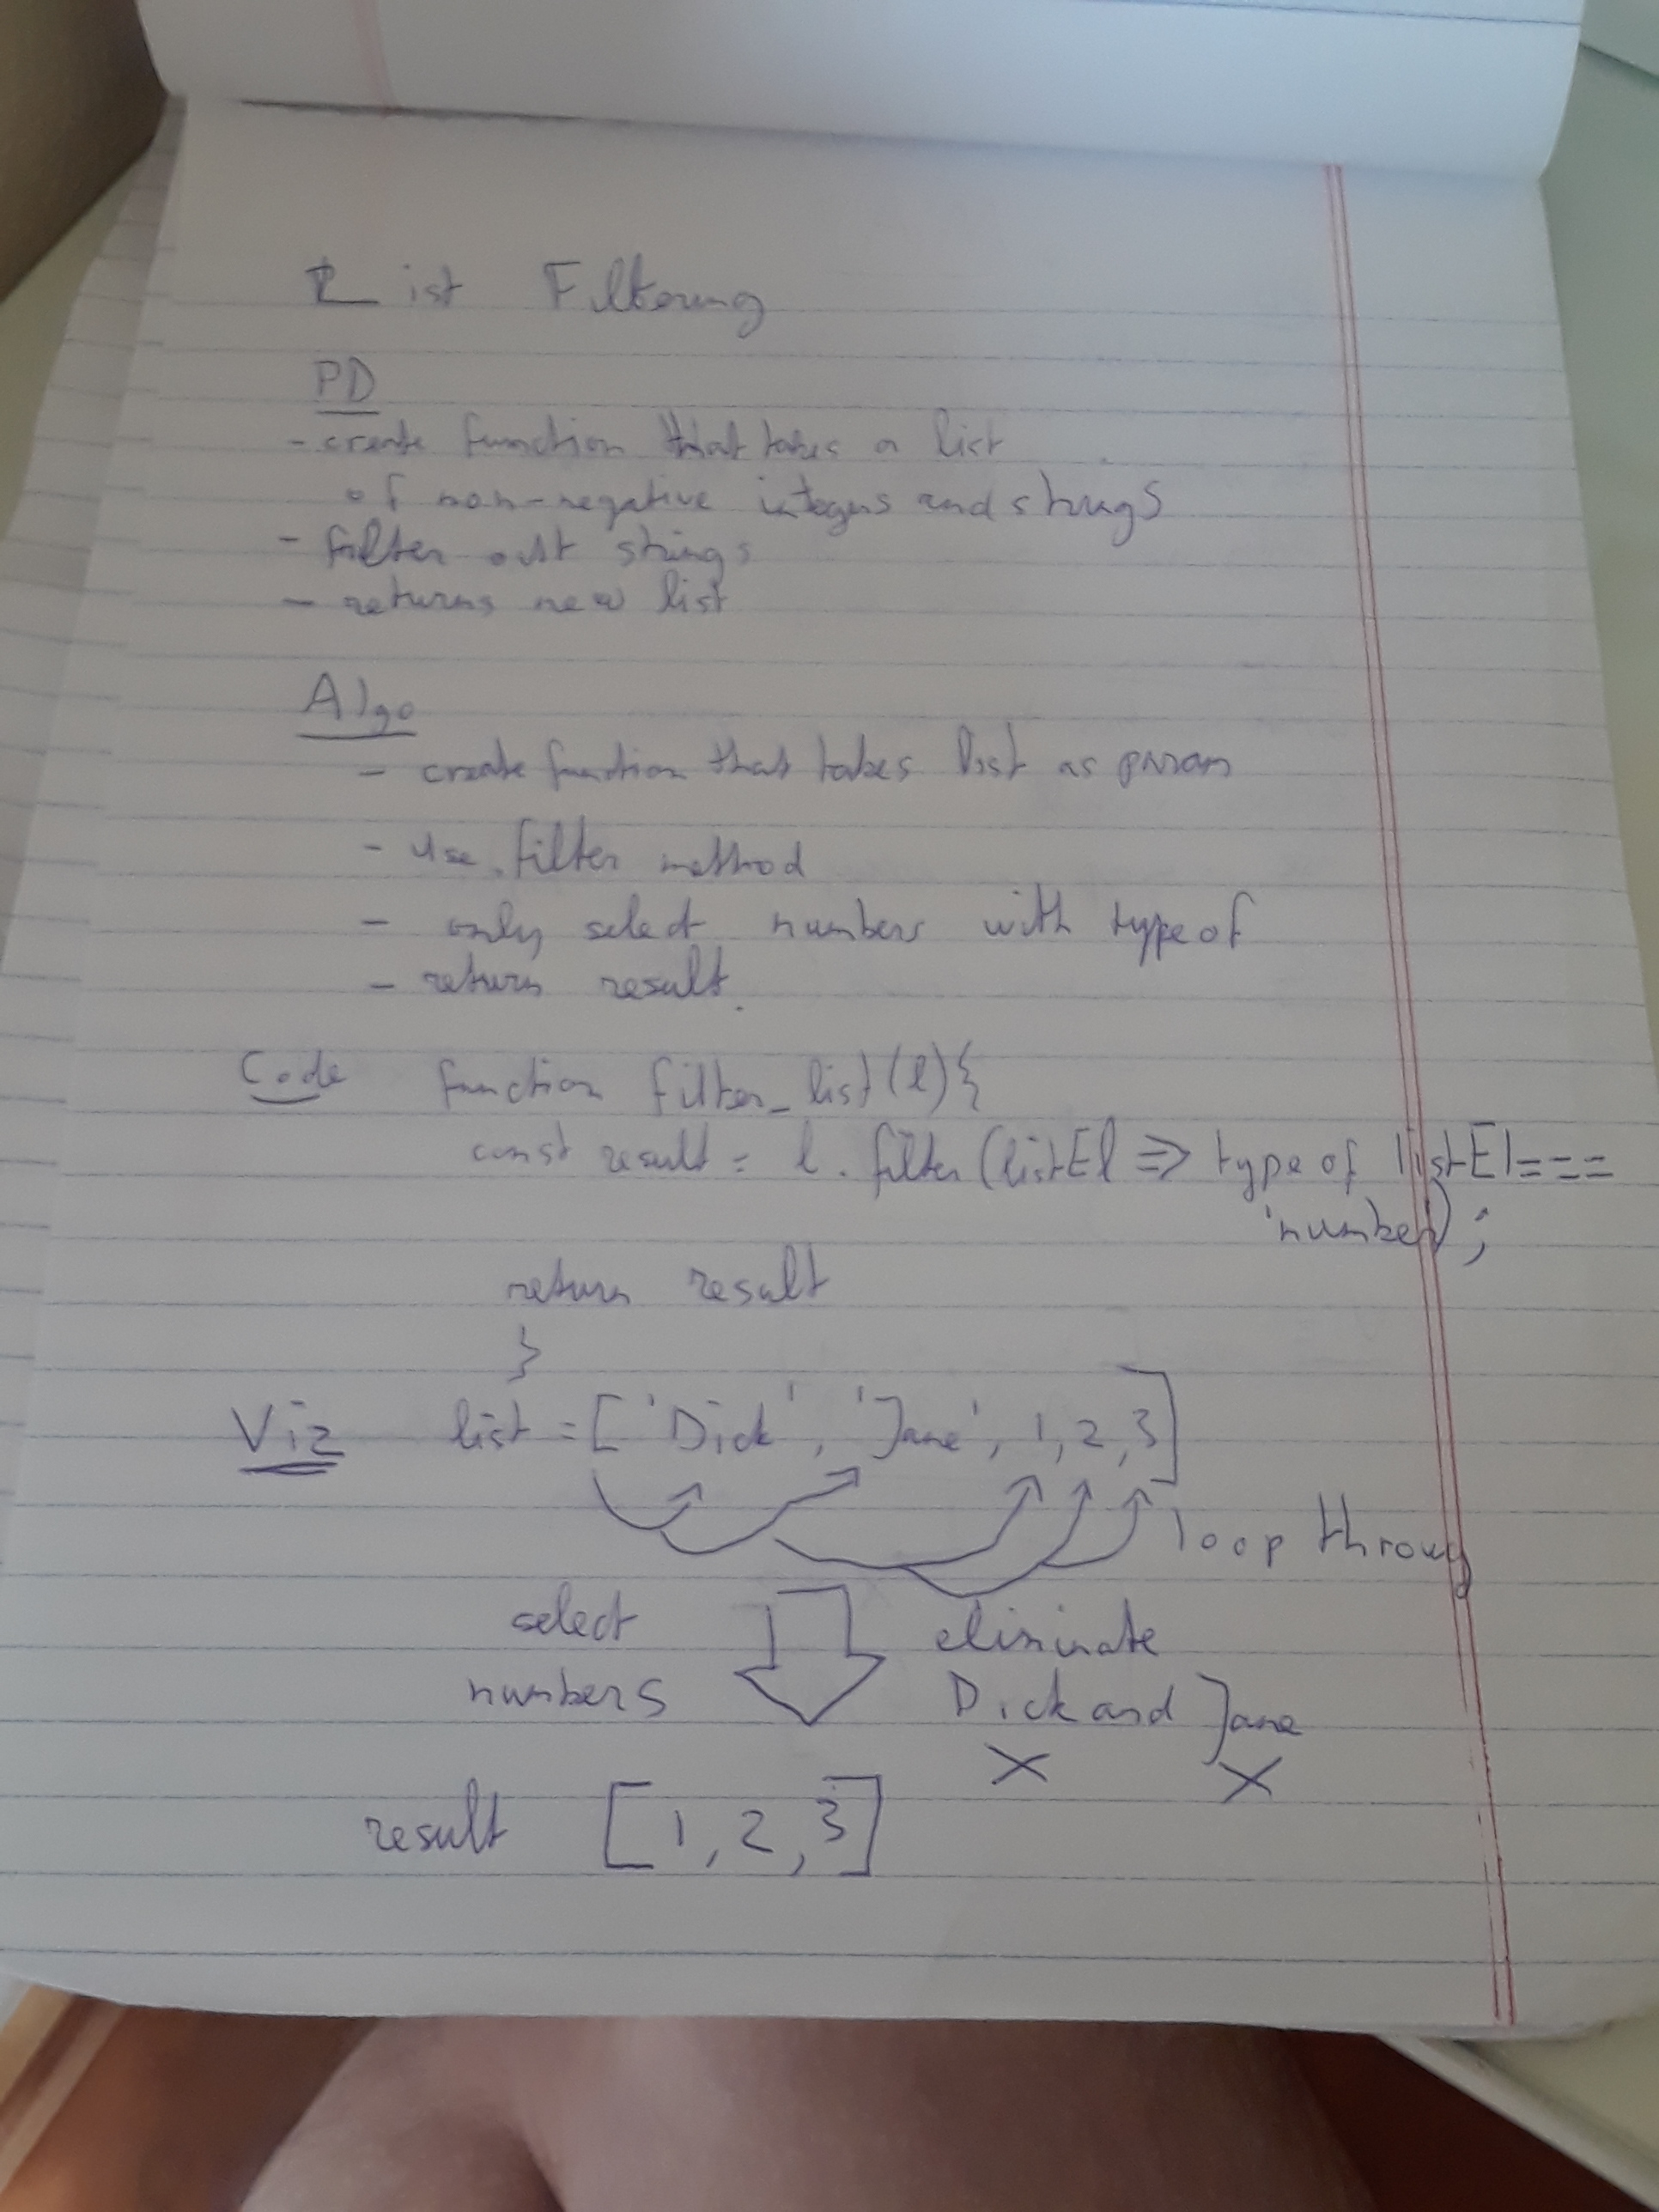 List Filtering
PD
- create function that takes a list
of non-negative integers and strings
- filter out strings
- returns new list
Algo
- create function that takes list as param
- use .filter method
- only select numbers with typeof
- return result.
Code function filter_list(l){
const result = l.filter(listEl => typeof listEl===
'number);
return result
}
Viz list = ['Dick', 'Jane', 1,2,3]
loop throug
select eliminate
numbers Dick and Jane
X X
result [1,2,3]